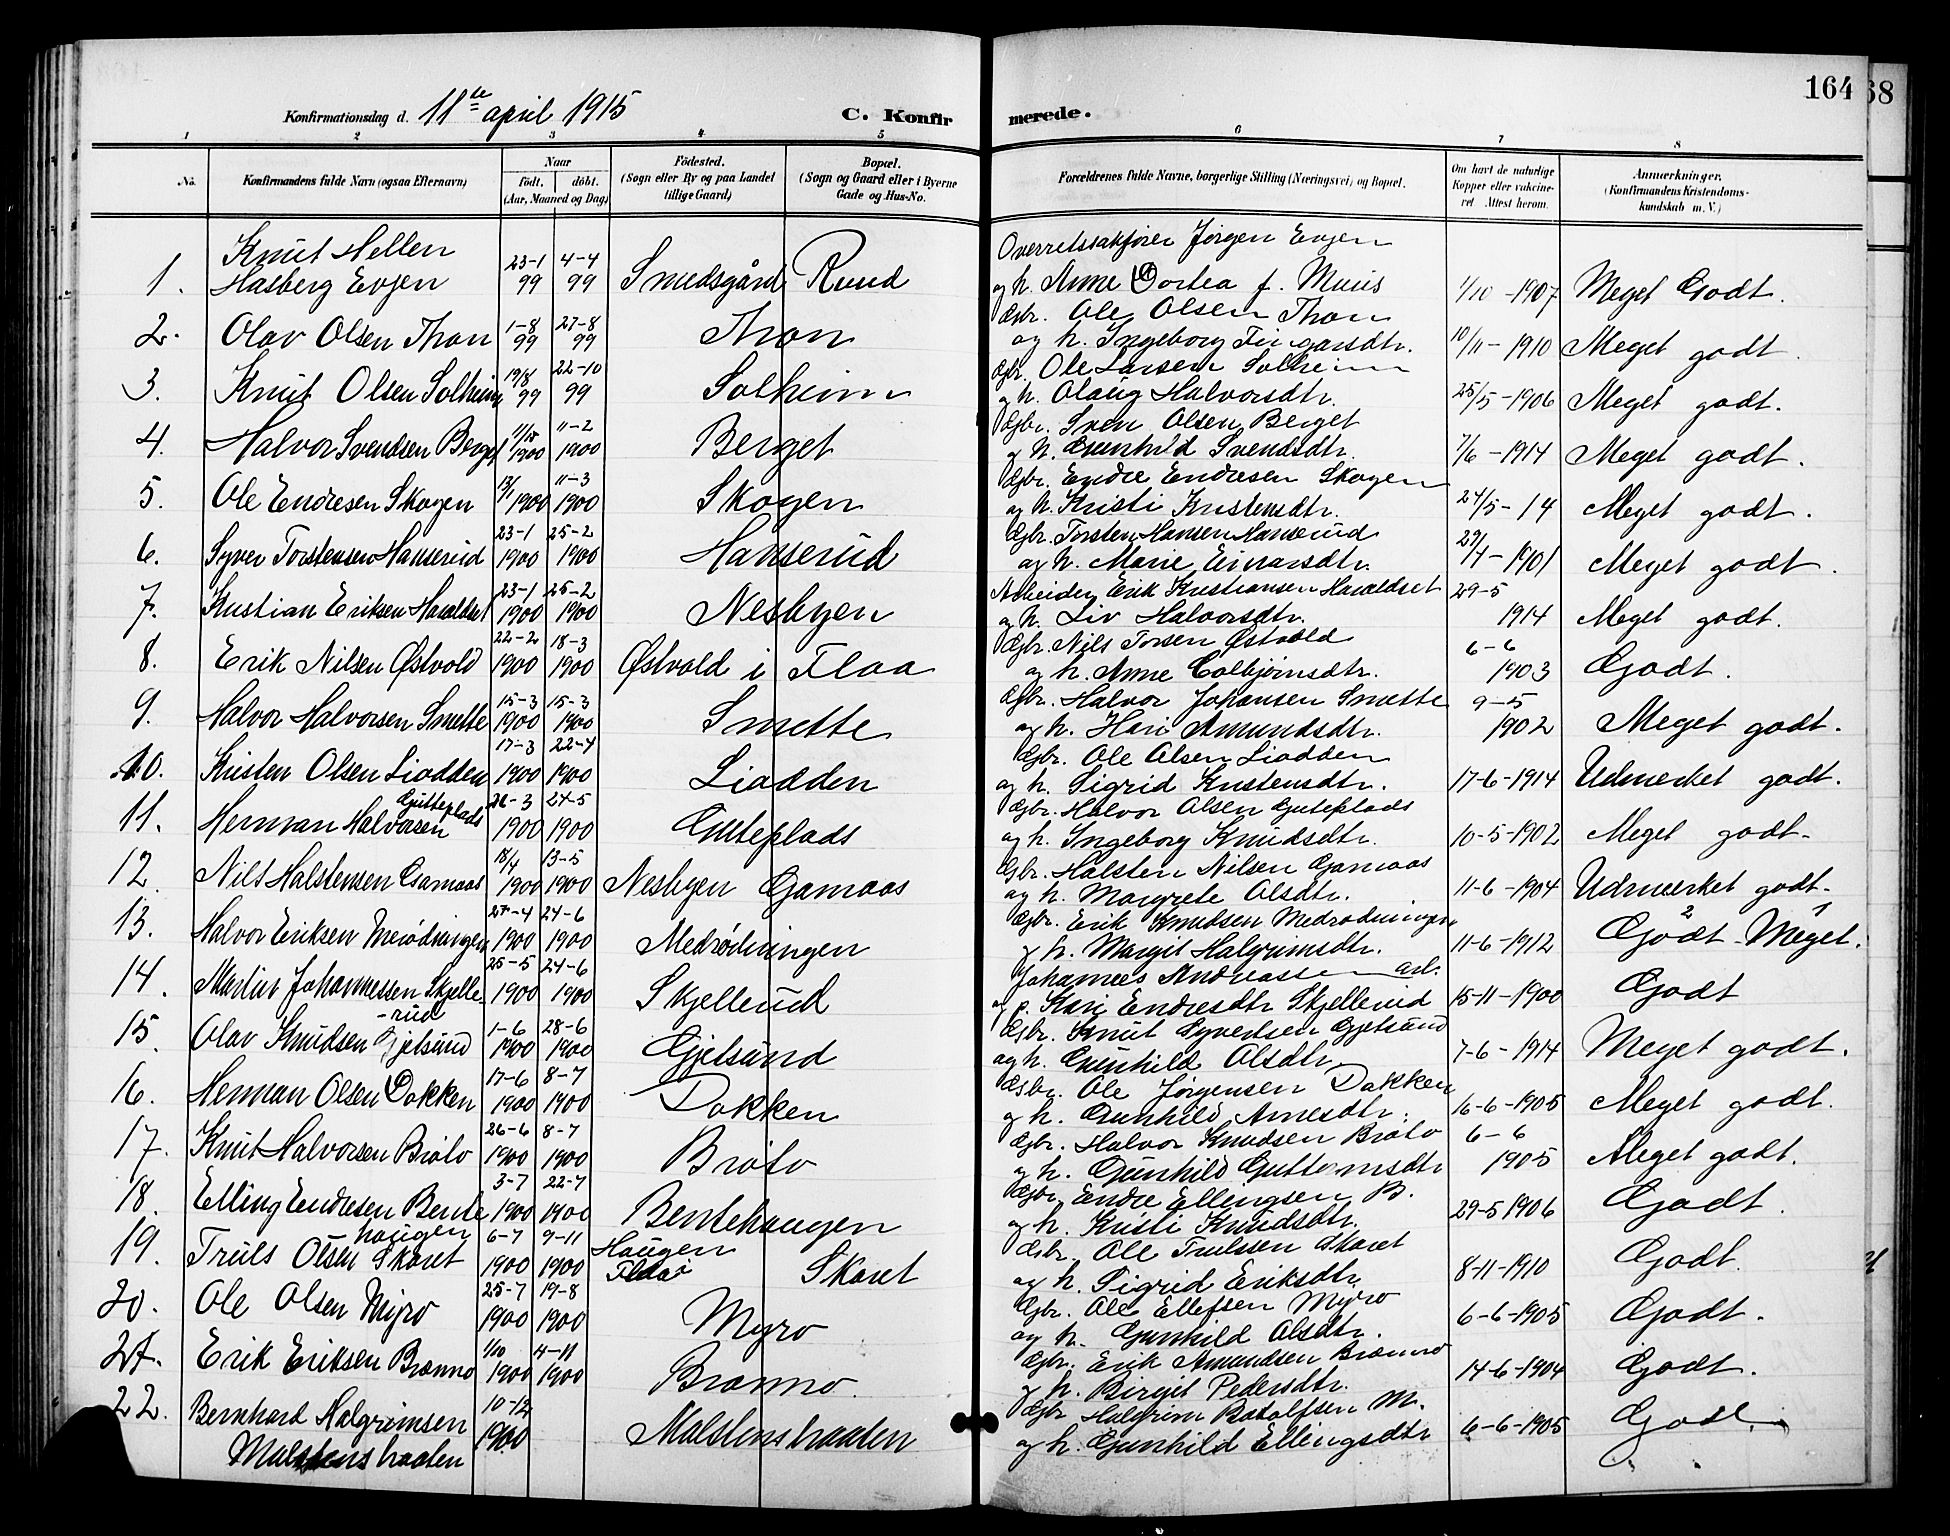 164
68
Konfirmationsdag d. 11te april 1915
C. Konfirmerede.
1 2 3 4 5 6 7 8
No. Konfirmandens fulde Navn (ogsaa Efternavn) Naar födt. döbt. (Aar, Maaned og Dag) Födested. (Sogn eller By og paa Landet tillige Gaard) Bopæl. (Sogn og Gaard eller i Byerne Gade og Hus-No. Forældrenes fulde Navne, borgerlige Stilling (Næringsvei) og Bopæl. Om havt de naturlige Kopper eller vakcineret Attest herom. Anmærkninger, (Konfirmandens Kristendomskundskab m. V.)
Knut Hellen 23-1 4-4 Overretssakfører Jørgen Evjen
1. Hasberg Evjen 99 99 Smedsgård Ruud og h. Anne Dortea f. Muus 1/10-1907 Meget Godt.
2. Olav Olsen Thon 1-8 99 27-8 99 Thon Gbr. Ole Olsen Thon
og h. Ingeborg Fingarsdtr. 10/11-1910 Meget godt.
3. Knut Olsen Solheim 19/8 99 22-10 99 Solheim Gbr. Ole Larsen Solheim
og h. Olaug Halvorsdtr. 25/5-1906 Meget godt.
4. Halvor Svendsen Berget 1900 11-2 1900 Berget Gbr. Sven Olsen Berget
og h. Gunhild Svendsdtr. 7/6-1914 Meget godt.
5. Ole Endresen Skogen 13/1 1900 11-3 1900 Skogen Gbr. Endre Endresen Skogen
og h. Kristi Kristensdtr. 24/5-14 Meget godt.
6. Syver Torstensen Hanserud 23-1 1900 25-2 1900 Hanserud Gbr. Torsten Hansen Hanserud
og h. Marie Einarsdtr. 1901 Meget godt.
7. Kristian Eriksen Haraldset 23-1 1900 25-2 1900 Nesbyen Arbeider Erik Kristiansen Haraldset
og h. Liv Halvorsdtr. 29-5 1914 Meget godt.
8. Erik Nilsen Østvold 22-2 1900 18-3 1900 Østvold i Flaa Gbr. Nils Torsen Østvold
og h. Anne Colbjørnsdtr. 6-6 1903 Godt.
9. Halvor Halvorsen Smette 15-3 1900 15-3 1900 Smette Gbr. Halvor Johansen Smette
og h. Hari Amundsdtr. 9-5 1902 Meget godt.
10. Kristen Olsen Liodden 17-3 1900 22-4 1900 Liodden Gbr. Ole Olsen Liodden
og h. Sigrid Kristensdtr. 17-6-1914 Udmerket godt.
11. Herman Halvorsen Gutteplads 26-3 1900 24-5 1900 Guteplads Gbr. Halvor Olsen Guteplads
og h. Ingeborg Knudsdtr. 10-5-1902 Meget godt.
12. Nils Halstensen Gamaas 18/4 1900 13-5 1900 Nesbyen Gamaas Gbr. Halsten Nilsen Gamaas
og h. Margrete Olsdtr. 11-6-1904 Udmærket godt.
13. Halvor Eriksen Merødningen 27-4 1900 24-6 1900 Medrødningen Gbr. Erik Knudsen Medrødningen
og h. Margit Halgrimsdtr. 11-6-1912 2 Godt 1 Meget.
14. Martin Johannessen Skjellerud 25-5 1900 24-6 1900 Skjellerud Johannes Andreassen arb.
og p. Kari Endresdtr Skjellerud 15-11-1900 Godt
15. Olav Knudsen Gjelsund 1-6 1900 28-6 1900 Gjelsund Gbr. Knut Syvertsen Gjelsund
og h. Gunhild Olsdtr 7-6-1914 Meget godt.
16. Herman Olsen Dokken 17-6 1900 8-7 1900 Dokken Gbr. Ole Jørgensen Dokken
og h. Gunhild Arnesdtr. 16-6-1905 Meget godt.
17. Knut Halvorsen Bråto 26-6 1900 8-7 1900 Bråto Gbr. Halvor Knudsen Bråto
og h. Gunhild Guttormsdtr 6-6 1905 Meget godt.
18. Elling Endresen Bentehaugen 3-7 1900 22-7 1900 Bentehaugen Gbr. Endre Ellingsen B.
og h. Kristi Knudsdtr. 29-5 1906 Godt.
19. Truls Olsen Skaret 6-7 1900 9-11 1900 Haugen Flaa Skaret Gbr. Ole Trulssen Skaret
og h. Sigrid Eriksdtr 8-11-1910 Godt.
20. Ole Olsen Myro 25-7 1900 19-8 1900 Myro Gbr. Ole Ellefsen Myro
og h. Gunhild Olsdtr. 6-6-1905 Godt.
21. Erik Eriksen Brænno 1/10 1900 4-11 1900 Brænno. Gbr. Erik Amundsen Brænno
og h. Birgit Pedersdtr. 14-6-1904 Godt.
22. Bernhard Halgrimsen Malstenshaaten 10-12 1900 Malstenshaaten Gbr Halgrim Rodolfsen M.
og h. Gunhild Ellingsdtr 6-6-1905 Godt.